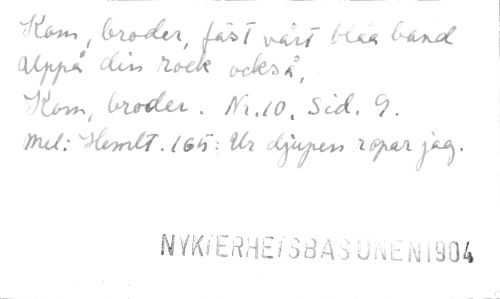 Kom, broder, fäst vårt blåa band
Uppå din rock också,
Kom, broder. Nr. 10. Sid. 9.
Mel: Hemlt. 165: Ur djupen ropar jag.
NYKTERHETSBASUNEN 1904